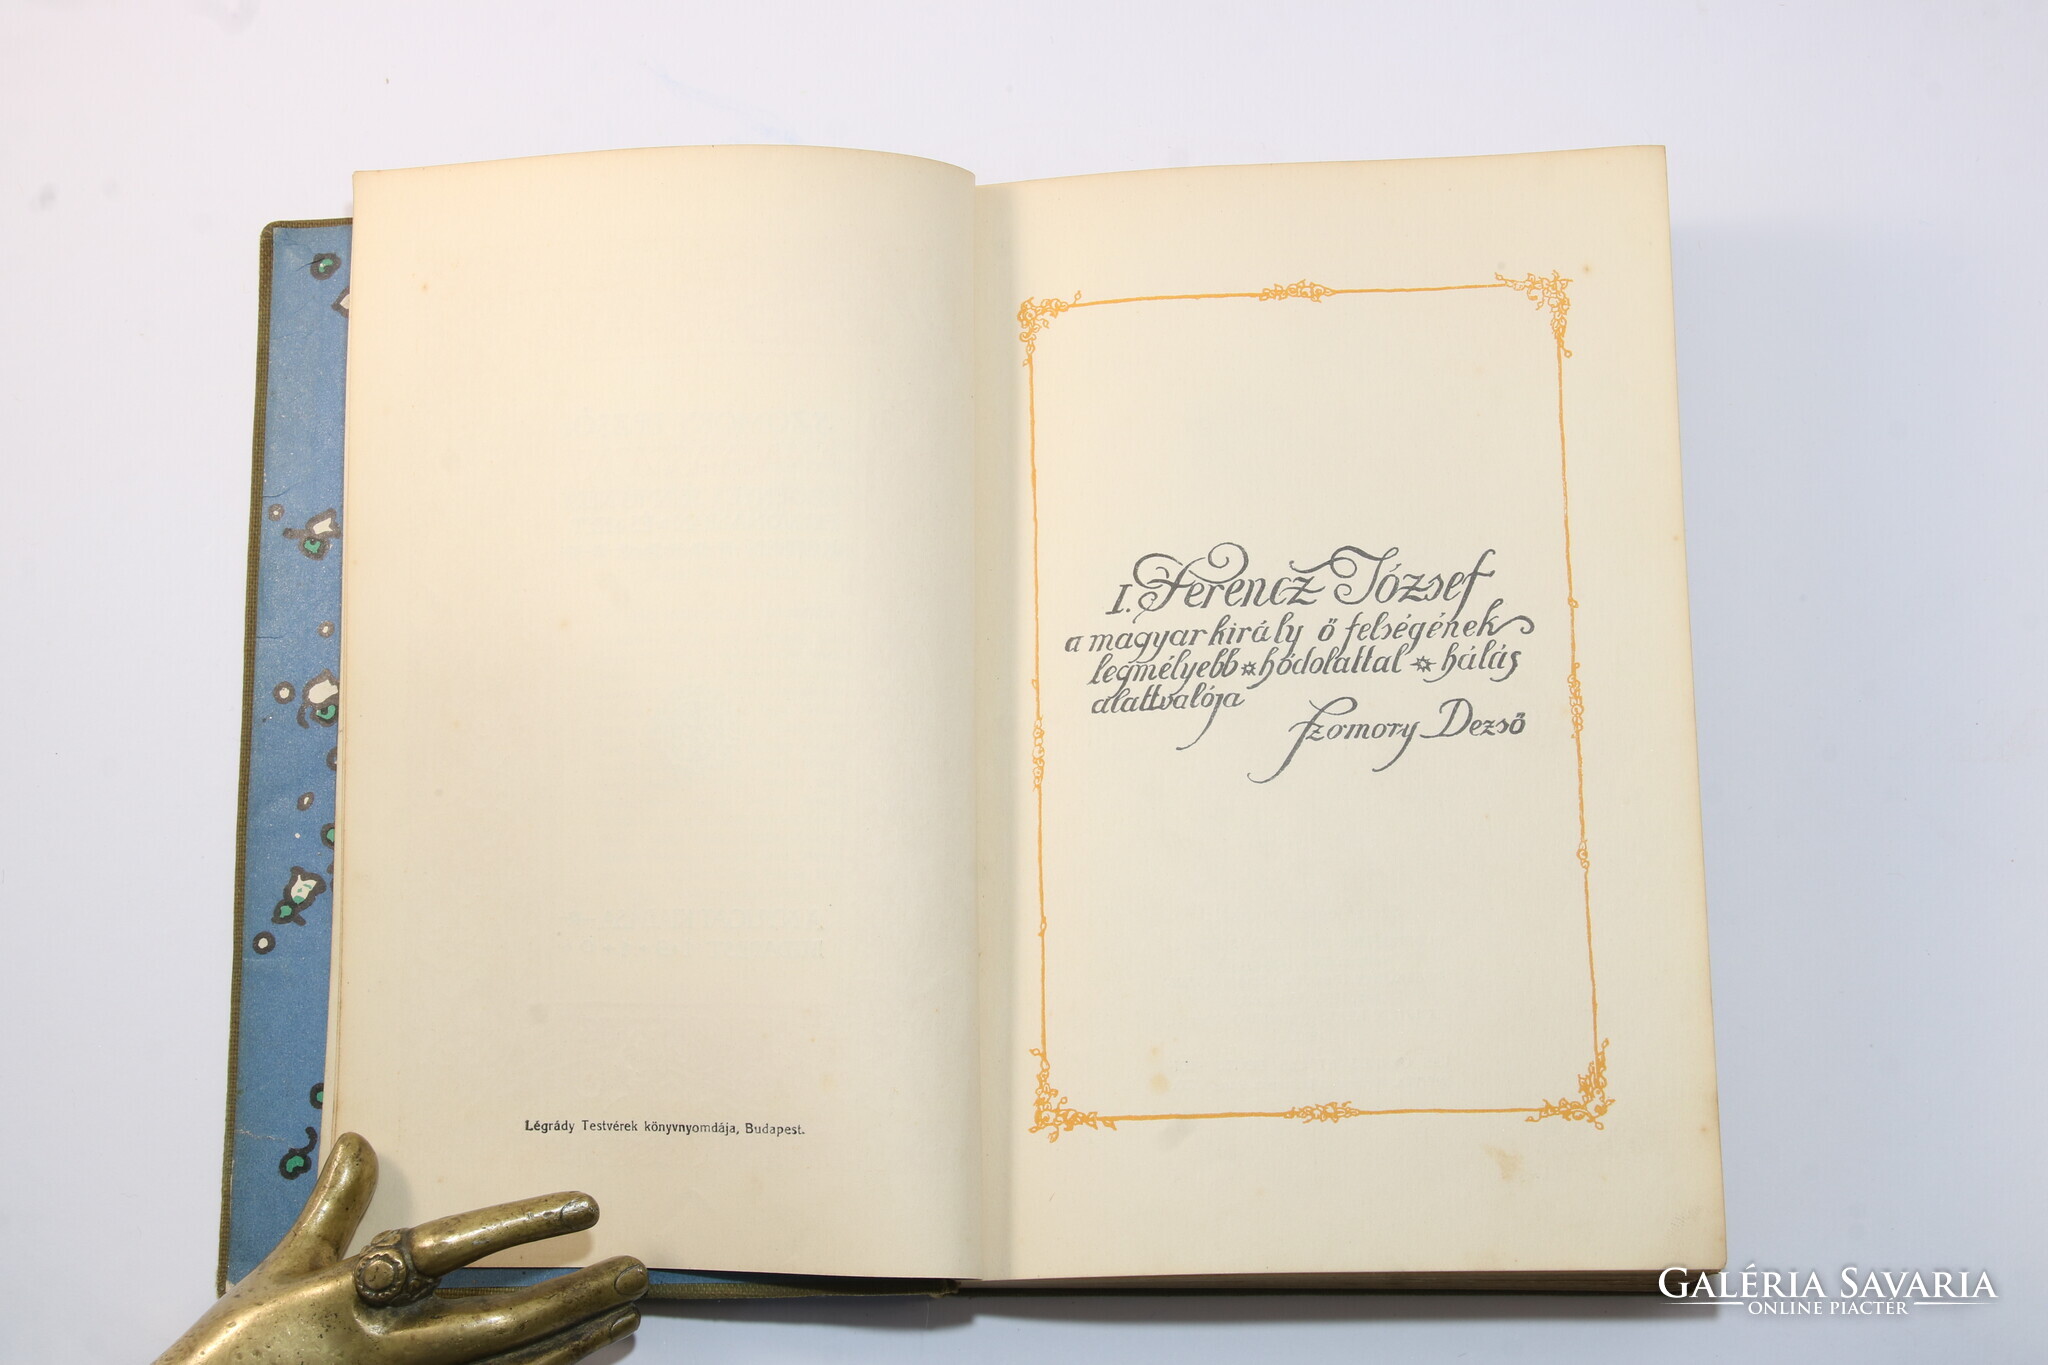 Légrády Testvérek könyvnyomdája, Budapest.
I. Ferencz József
a magyar király ő felségének
legmélyebb hódolattal hálás
alattvalója
Szomory Dezső
GALÉRIA SAVARIA
ONLINE PIACTÉR